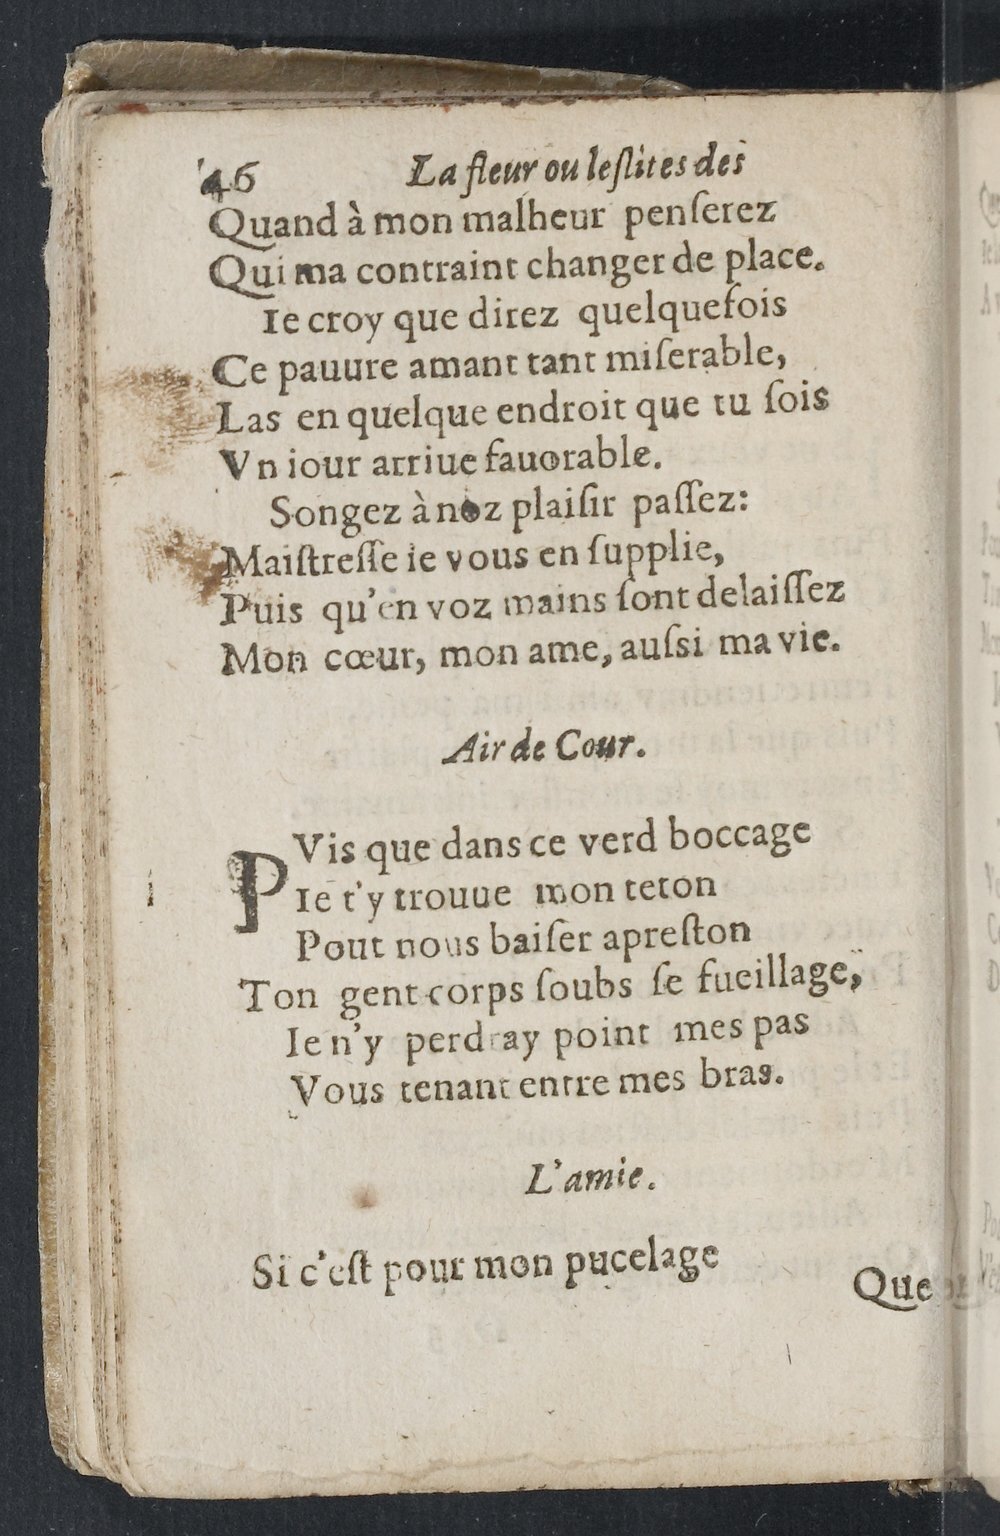 46 La fleur ou leſlites des
Quand à mon malheur penſerez
Qui ma contraint changer de place.
Ie croy que direz quelquefois
Ce pauure amant tant miſerable,
Las en quelque endroit que tu ſois
Vn iour arriue fauorable.
Songez à noz plaiſir paſſez:
Maiſtreſſe ie vous en ſupplie,
Puis qu'en voz mains ſont delaiſſez
Mon cœur, mon ame, auſsi ma vie.
Air de Cour.
PVis que dans ce verd boccage
Ie t'y trouue mon teton
Pout nous baiſer apreſton
Ton gent corps ſoubs ſe fueillage,
Ie n'y perdray point mes pas
Vous tenant entre mes bras.
L'amie.
Si c'eſt pour mon pucelage
Que